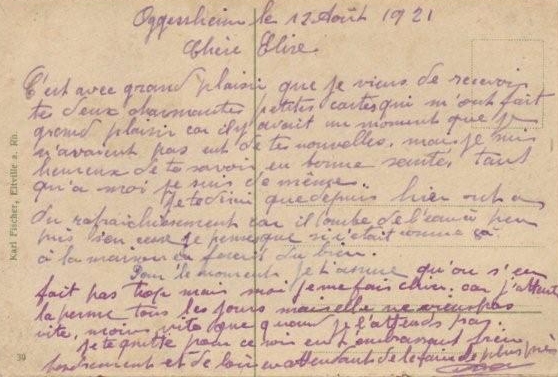 Oggersheim le 12 Août 1921
Chère Elise
C'est avec grand plaisir que je viens de recevoir
tes deux charmantes petites cartes qui m'ont fait
grand plaisir car il y avait un moment que je
n'avaient pas eut de tes nouvelles, mais je suis
heureux de te savoir en bonne santée tant
qu'a moi je suis de même.
Je te dirai que depuis hier ont a
du rafraichissement car il tombe de l'eau à peu
près sen cesse je pense que si c'était comme ça
à la maison ça ferait du bien.
Pour le moment je t'assure qu'on s'en
fait pas trop mais moi je me fais chier car j'attent
la perme tous les jours mais elle ne viens pas
vite, moins vite que quand je l'attends pas.
Je te quitte pour ce soir en t'embrassant bien
tendrement et de loin en attendant de le faire de plus près
Karl Fischer, Eltville a. Rh.
39